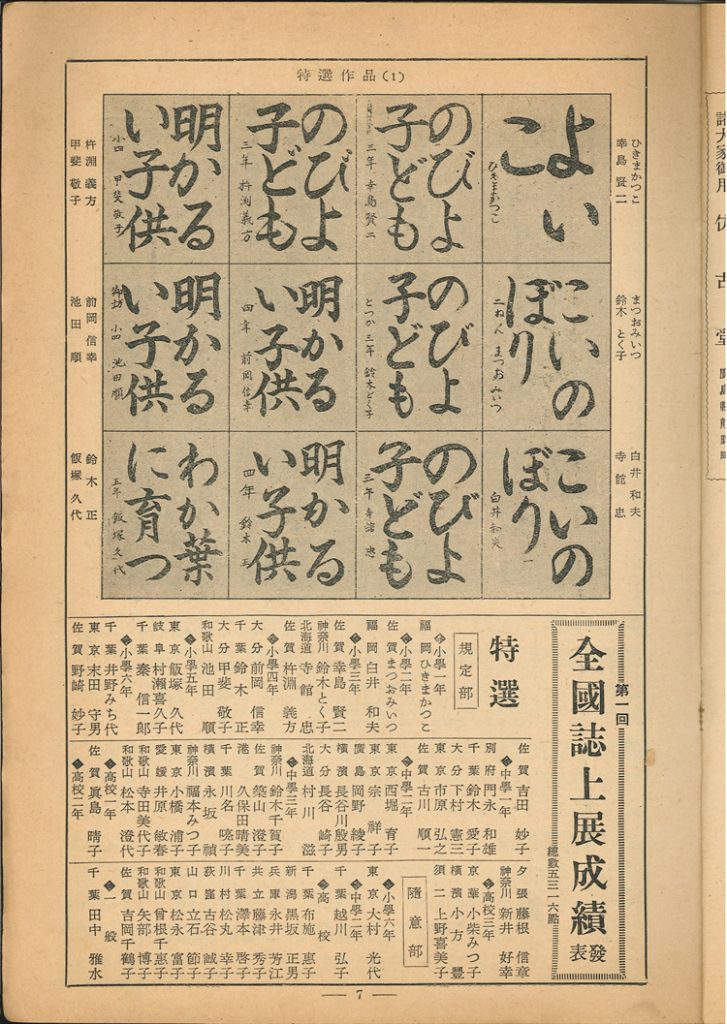 特選作品(1)
ひきまかつこ
幸島 賢二
まつおみいつ
鈴木 とく子
白井 和夫
寺館 忠
よい
こ
ひきまかつこ
こいの
ぼり
二ねん まつおみいつ
こいの
ぼり
白井和夫
のびよ
子ども
三年 幸島賢二
のびよ
子ども
とつか三年 鈴木とく子
のびよ
子ども
三年 寺舘 忠
のびよ
子ども
三年 杵渕義方
明かる
い子供
四年 前岡信幸
明かる
い子供
四年 鈴木 正
明かる
い子供
小四 甲斐敬子
明かる
い子供
小四 池田順
わか葉
に育つ
五年 飯塚久代
杵淵 義方
甲斐 敬子
前岡 信幸
池田 順
鈴木 正
飯塚 久代
第一回
全國誌上展成績發表
總數五三一六點
特選
規定部
小學一年
福岡 ひきまかつこ
小學二年
佐賀 まつおみいつ
福岡 白井 和夫
小學三年
佐賀 幸島 賢二
神奈川 鈴木とく子
北海道 寺館 忠
佐賀 杵淵 義方
小學四年
大分 前岡 信幸
千葉 鈴木 正
大分 甲斐 敬子
和歌山 池田 順
小學五年
東京 飯塚 久代
岐阜 村瀬喜久子
千葉 秦 信一郎
小學六年
千葉 井野みち代
東京 末田 守男
佐賀 野崎 妙子
佐賀 吉田 妙子
中學一年
別府 門永 和雄
大分 下村 憲三
千葉 鈴木 愛子
東京 市原 弘之
佐賀 古川 順一
中學二年
東京 西堀 育子
東京 宗 祥子
廣島 岡野 綾子
横濱 長谷川殷男
大分 長谷 崎子
北海道 村川 滋
中學三年
神奈川 鈴木千賀子
佐賀 築山 澄子
港 久保田晴美
千葉 川名 暁子
横濱 永坂 禎
神奈川 福本みつ子
東京 小橋 浦子
愛媛 井原 敏春
和歌山 寺田美代子
和歌山 松本 澄代
高校一年
佐賀 眞島 晴子
高校二年
夕張 藤根 信章
神奈川 新井 好幸
高校三年
京華 小柴みつ子
横濱 小方 豐
須二 上野喜美子
隨意部
小學六年
東京 大村 光代
中學二年
千葉 越川 弘子
高校
千葉 布施 惠子
新潟 黒坂 正男
兵庫 永井 芳江
共立 藤津 秀子
千葉 澤本 啓子
川村 松丸 幸子
荻窪 古谷 誠子
山口 立石 節子
東京 松永 富子
和歌山 曾根千惠子
和歌山 矢部 博子
佐賀 吉岡千鶴子
一般
千葉 田中 雅水
— 7 —